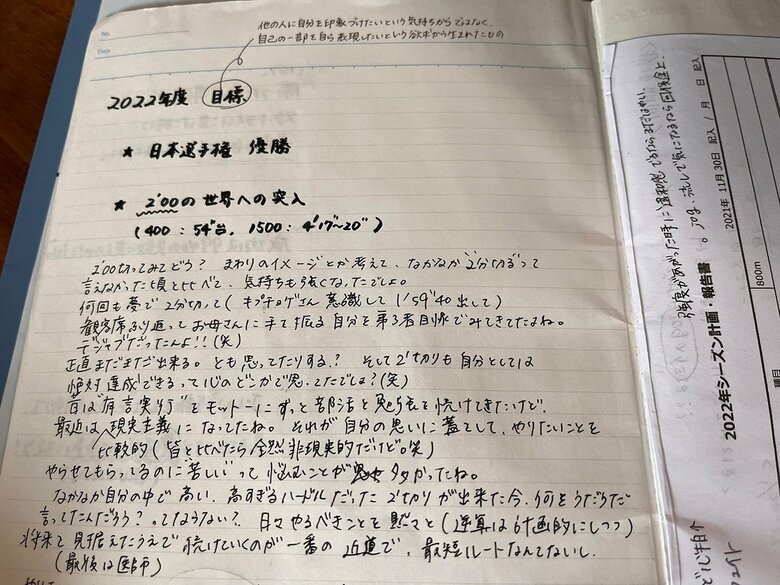 No.
Date
他の人に自分を印象づけたいという気持ちからではなく、
自己の一部を自ら表現したいという欲求から生まれたもの
2022年度 目標
★ 日本選手権 優勝
★ 2'00の世界への突入
(400：54"台、1500：4'17"~20")
2'00切ってみてどう？ まわりのイメージとか考えて、なかなか"2分切る"って
言えなかった頃と比べて、気持ちも強くなったでしょ。
何回も夢で2分切って(キプチョゲさん意識して1'59"40出して)
観客席ふり返ってお母さんに手で振る自分を第3者目線でみてきてたよね。
デジャブだったんよ!!(笑)
正直まだまだ出来る。とも思ってたりする？ そして2'切りも自分としては
絶対達成できるって心のどこかで思ってたでしょ？(笑)
昔は"有言実行"をモットーにずっと部活と勉強を続けてきたけど、
最近は現実主義になってたね。それが自分の思いに蓋をして、やりたいことを
比較的(皆と比べたら全然非現実的だけど。笑)
やらせてもらってるのに"苦しい"って悩むことが多かったね。
なかなか自分の中で高い、高すぎるハードルだった2'切りが出来た今、何をうだうだ
言ってたんだろう？ってならない？ 日々やるべきことを黙々と(逆算は計画的にしつつ)
将来を見据えたうえで続けていくのが一番の近道で、最短ルートなんてないし。
(最後は医師)
強度があがった時に違和感でるならまだはやい。
。Jog、流しで気になるなら回復食と、
2022年シーズン計画・報告書
2021年 11月 30日 記入 / 月 日 記入
800m
種目